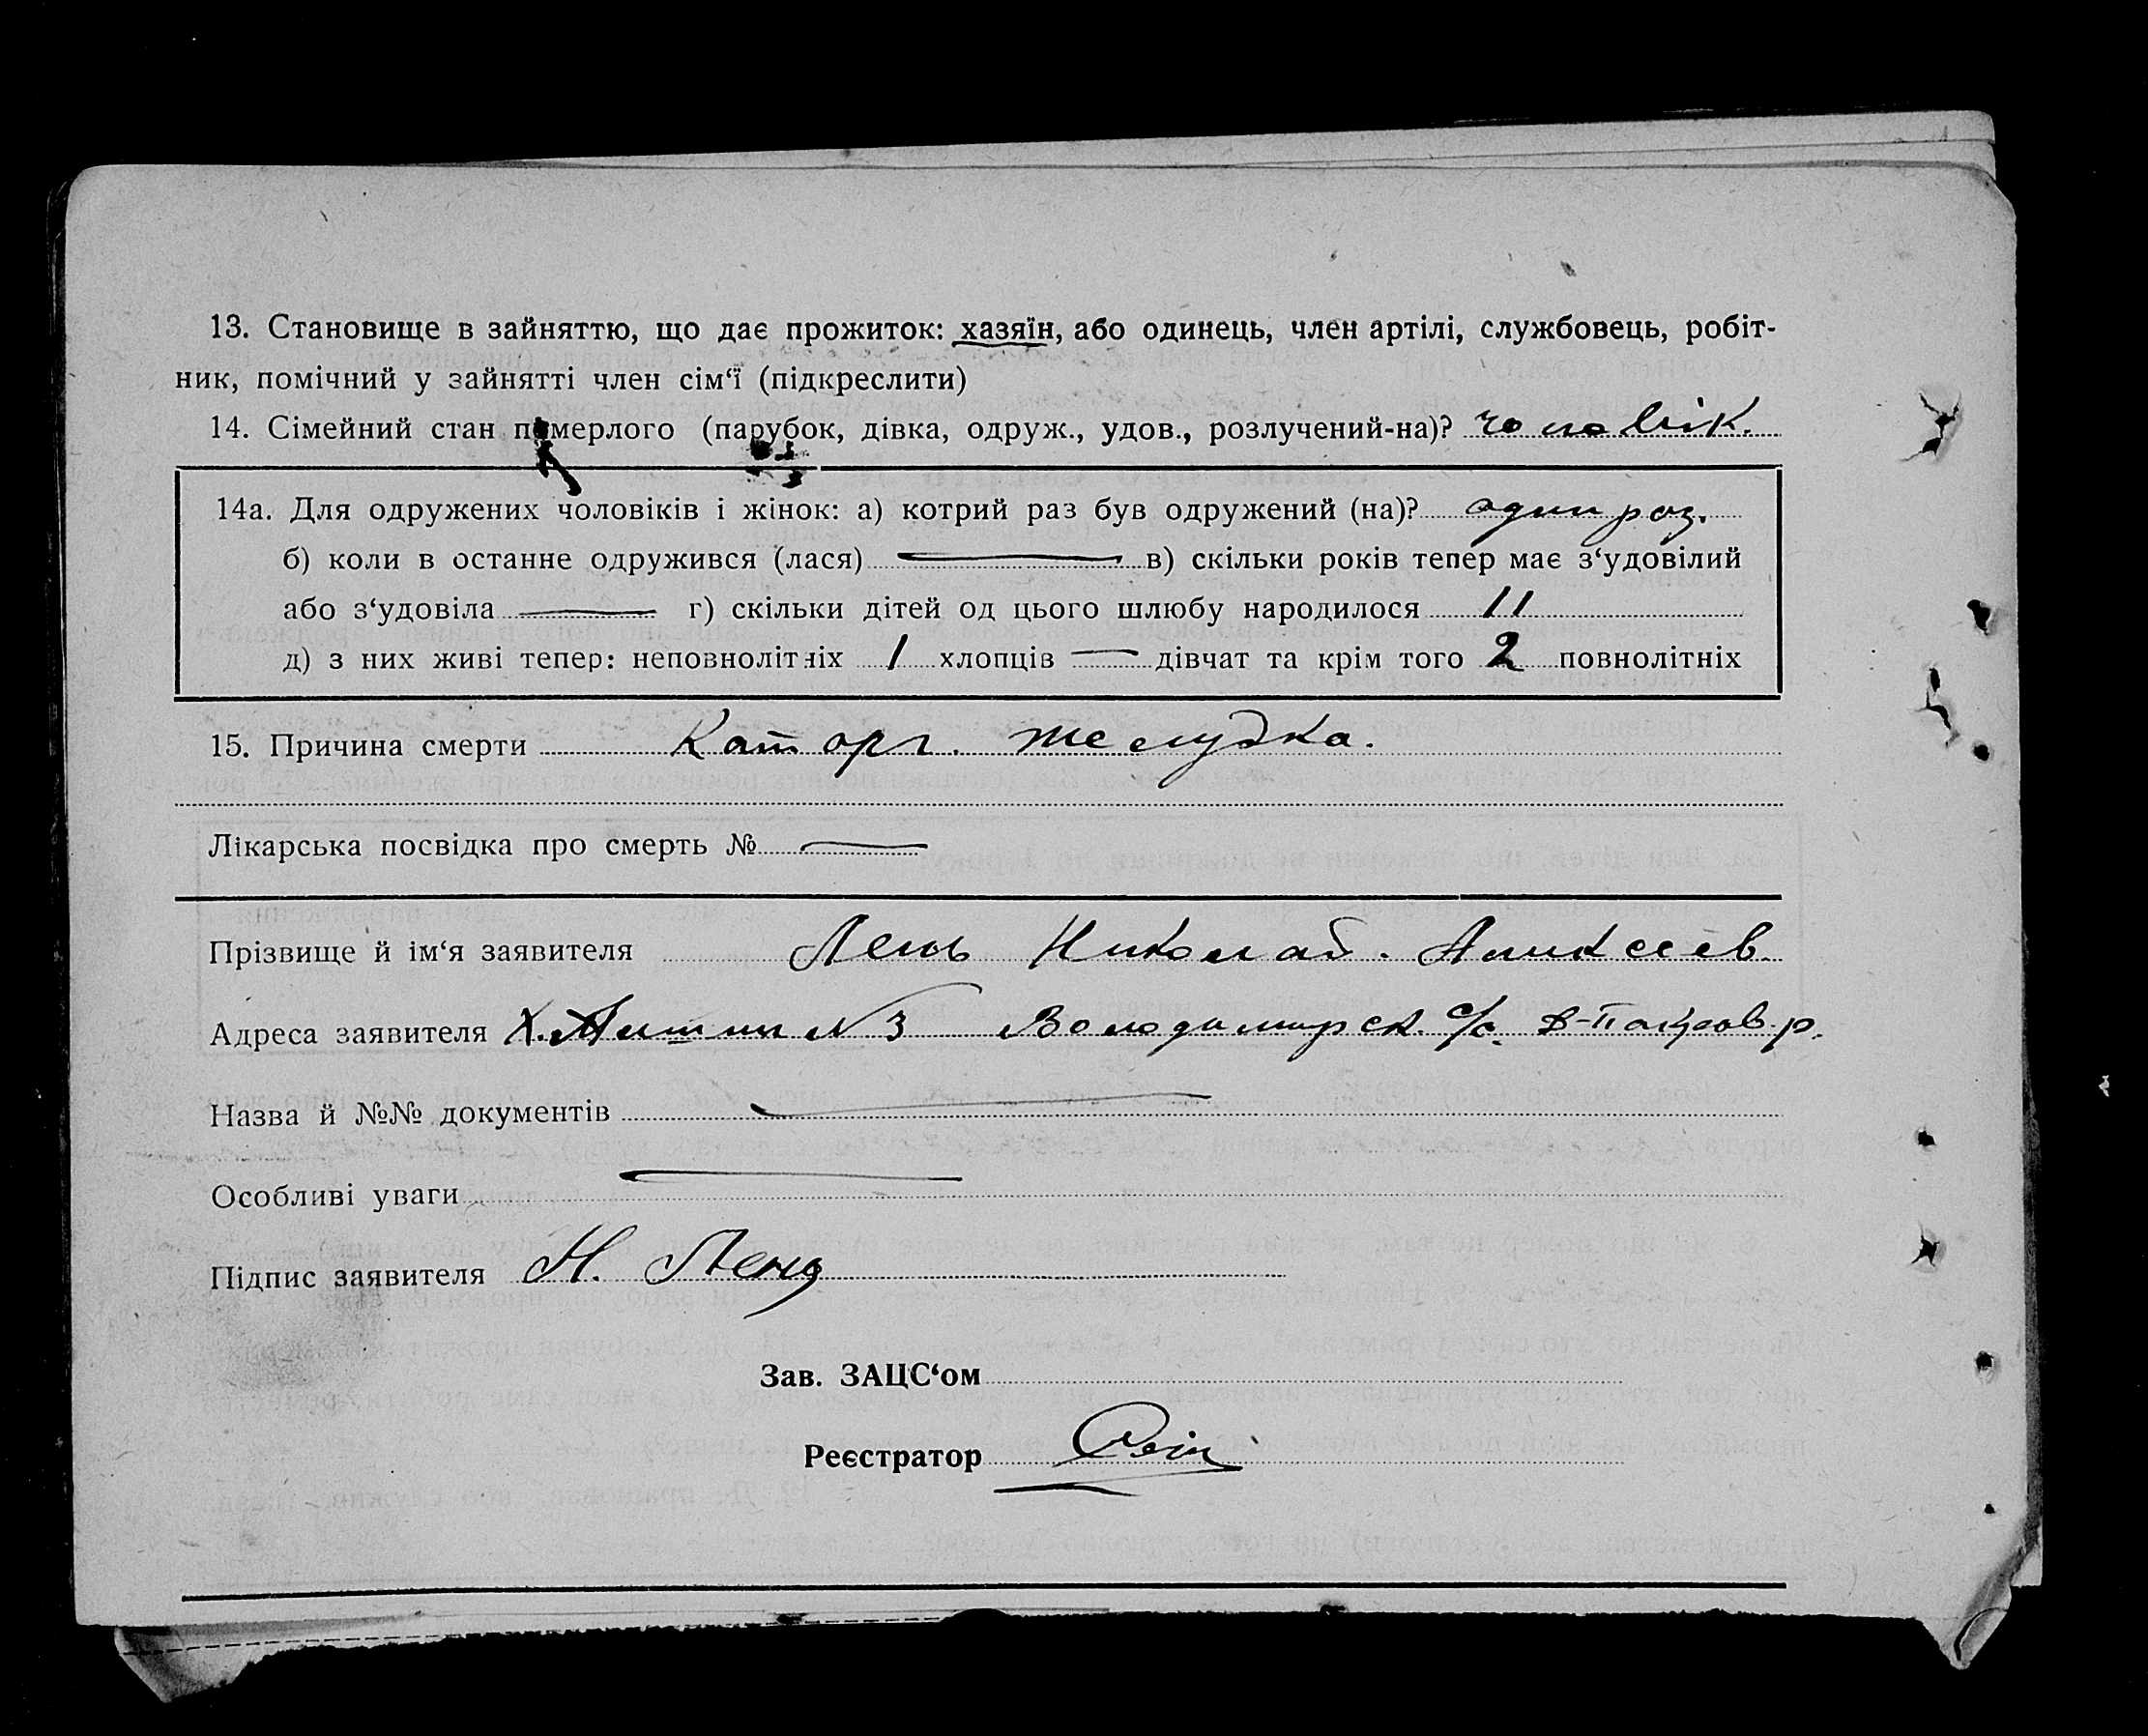 13. Становище в зайняттю, що дає прожиток: хазяїн, або одинець, член артілі, службовець, робіт-
ник, помічний у зайнятті член сім‘ї (підкреслити)
14. Сімейний стан померлого (парубок, дівка, одруж., удов., розлучений-на)? чоловік.
14а. Для одружених чоловіків і жінок: а) котрий раз був одружений (на)? один раз.
б) коли в останне одружився (лася) — в) скільки років тепер має з‘удовілий
або з‘удовіла — г) скільки дітей од цього шлюбу народилося 11
д) з них живі тепер: неповнолітніх 1 хлопців — дівчат та крім того 2 повнолітніх
15. Причина смерти Катарг. желудка.
Лікарська посвідка про смерть № —
Прізвище й ім‘я заявителя Лень Николай. Аликсеев.
Адреса заявителя Х. №3 Володимирск. с/с. Д-Покров. р.
Назва й №№ документів —
Особливі уваги —
Підпис заявителя Н. Лень
Зав. ЗАЦС‘ом
Реєстратор